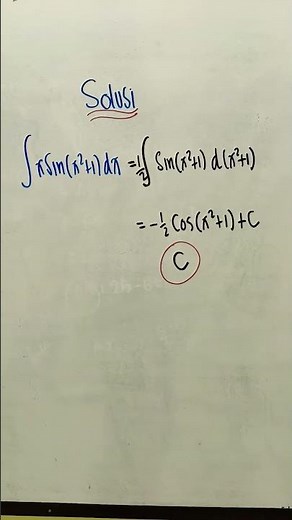 Solusi
∫x Sin(x²+1) dx = ½∫ Sin(x²+1) d(x²+1)
= -½ Cos(x²+1) + C
C